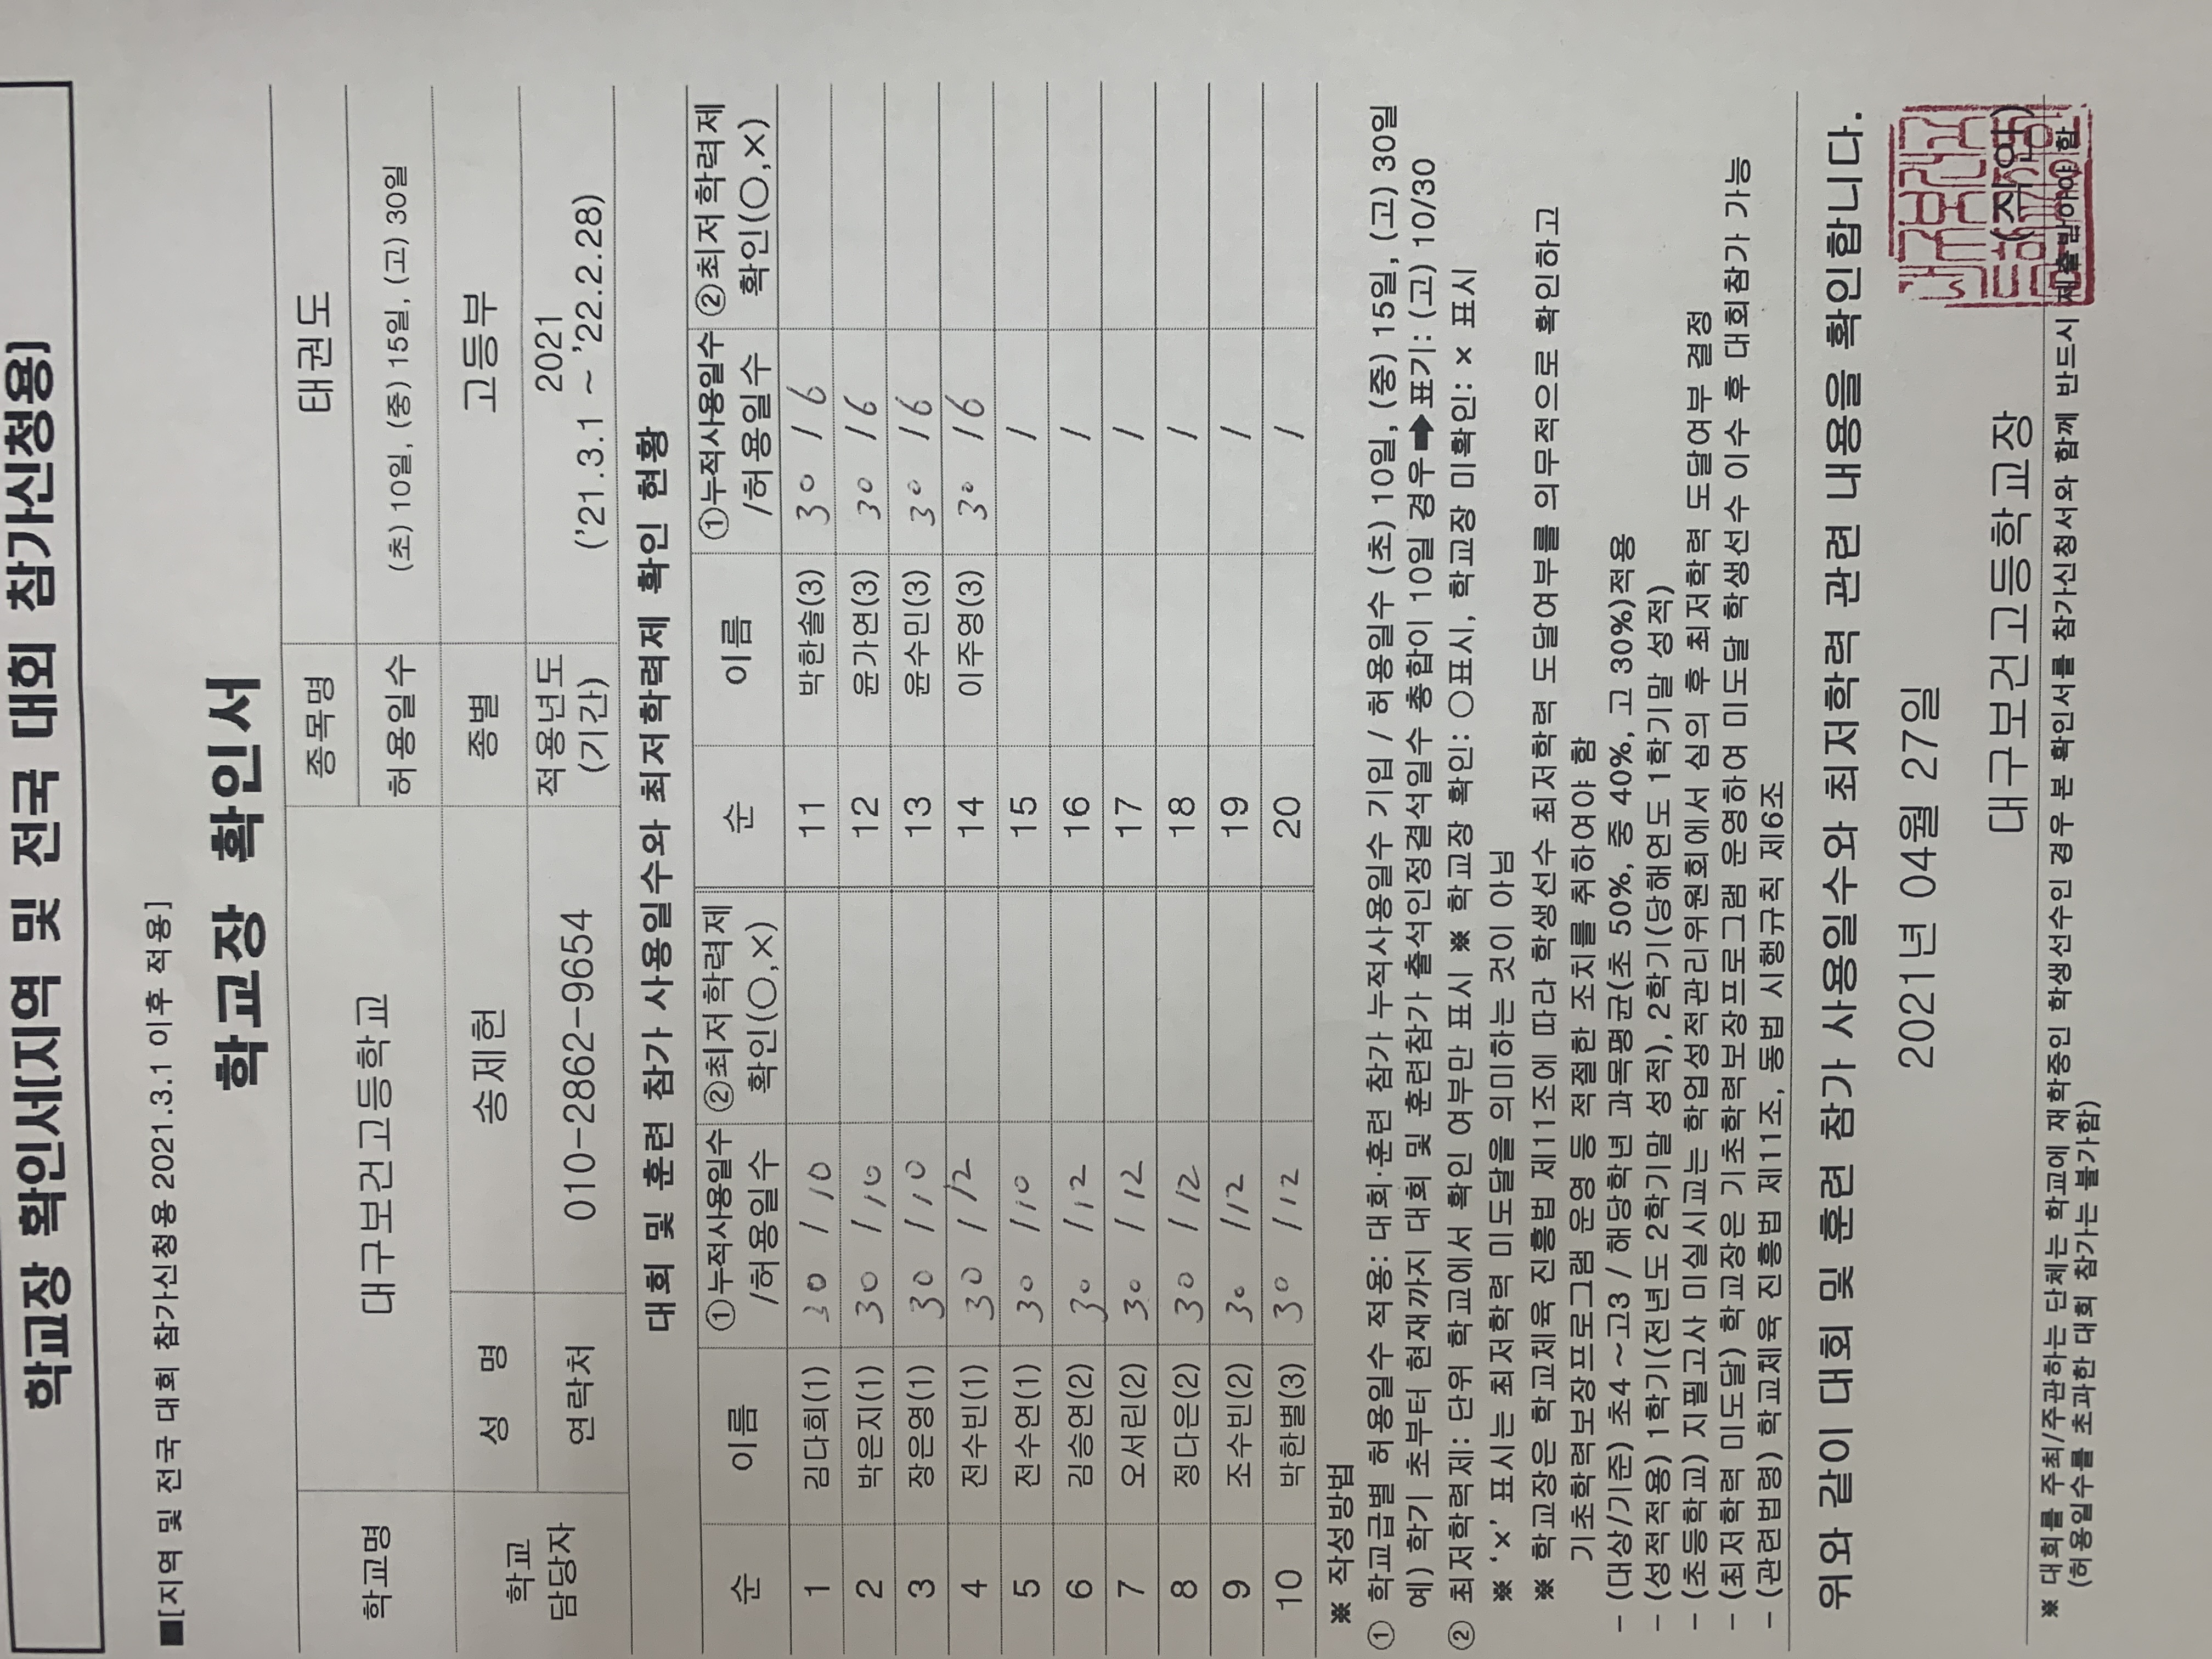 학교장 확인서[지역 및 전국 대회 참가신청용]
■[지역 및 전국 대회 참가신청용 2021.3.1 이후 적용]
학교장 확인서
학교명 대구보건고등학교 종목명 태권도
허용일수 (초) 10일, (중) 15일, (고) 30일
학교 담당자 성 명 송제헌 종별 고등부
연락처 010-2862-9654 적용년도 (기간) 2021 ('21.3.1 ~ '22.2.28)
대회 및 훈련 참가 사용일수와 최저학력제 확인 현황
순 이름 ①누적사용일수 /허용일수 ②최저학력제 확인(○,×) 순 이름 ①누적사용일수 /허용일수 ②최저학력제 확인(○,×)
1 김다희(1) 30 / 10 11 박한솔(3) 30 / 6
2 박은지(1) 30 / 10 12 윤가연(3) 30 / 6
3 장은영(1) 30 / 10 13 윤수민(3) 30 / 6
4 전수빈(1) 30 / 12 14 이주영(3) 30 / 6
5 전수연(1) 30 / 10 15 /
6 김승연(2) 30 / 12 16 /
7 오서린(2) 30 / 12 17 /
8 정다은(2) 30 / 12 18 /
9 조수빈(2) 30 / 12 19 /
10 박한별(3) 30 / 12 20 /
※ 작성방법
① 학교급별 허용일수 적용: 대회·훈련 참가 누적사용일수 기입 / 허용일수 (초) 10일, (중) 15일, (고) 30일
예) 학기 초부터 현재까지 대회 및 훈련참가 출석인정결석일수 총합이 10일 경우➡표기: (고) 10/30
② 최저학력제: 단위 학교에서 확인 여부만 표시 ※ 학교장 확인: ○표시, 학교장 미확인: × 표시
※ '×' 표시는 최저학력 미도달을 의미하는 것이 아님
※ 학교장은 학교체육 진흥법 제11조에 따라 학생선수 최저학력 도달여부를 의무적으로 확인하고
기초학력보장프로그램 운영 등 적절한 조치를 취하여야 함
- (대상/기준) 초4 ~ 고3 / 해당학년 과목평균(초 50%, 중 40%, 고 30%)적용
- (성적적용) 1학기(전년도 2학기말 성적), 2학기(당해연도 1학기말 성적)
- (초등학교) 지필고사 미실시교는 학업성적관리위원회에서 심의 후 최저학력 도달여부 결정
- (최저학력 미도달) 학교장은 기초학력보장프로그램 운영하여 미도달 학생선수 이수 후 대회참가 가능
- (관련법령) 학교체육 진흥법 제11조, 동법 시행규칙 제6조
위와 같이 대회 및 훈련 참가 사용일수와 최저학력 관련 내용을 확인합니다.
2021년 04월 27일
대구보건고등학교장 (직인)
※ 대회를 주최/주관하는 단체는 학교에 재학중인 학생선수인 경우 본 확인서를 참가신청서와 함께 반드시 제출받아야 함
(허용일수를 초과한 대회 참가는 불가함)